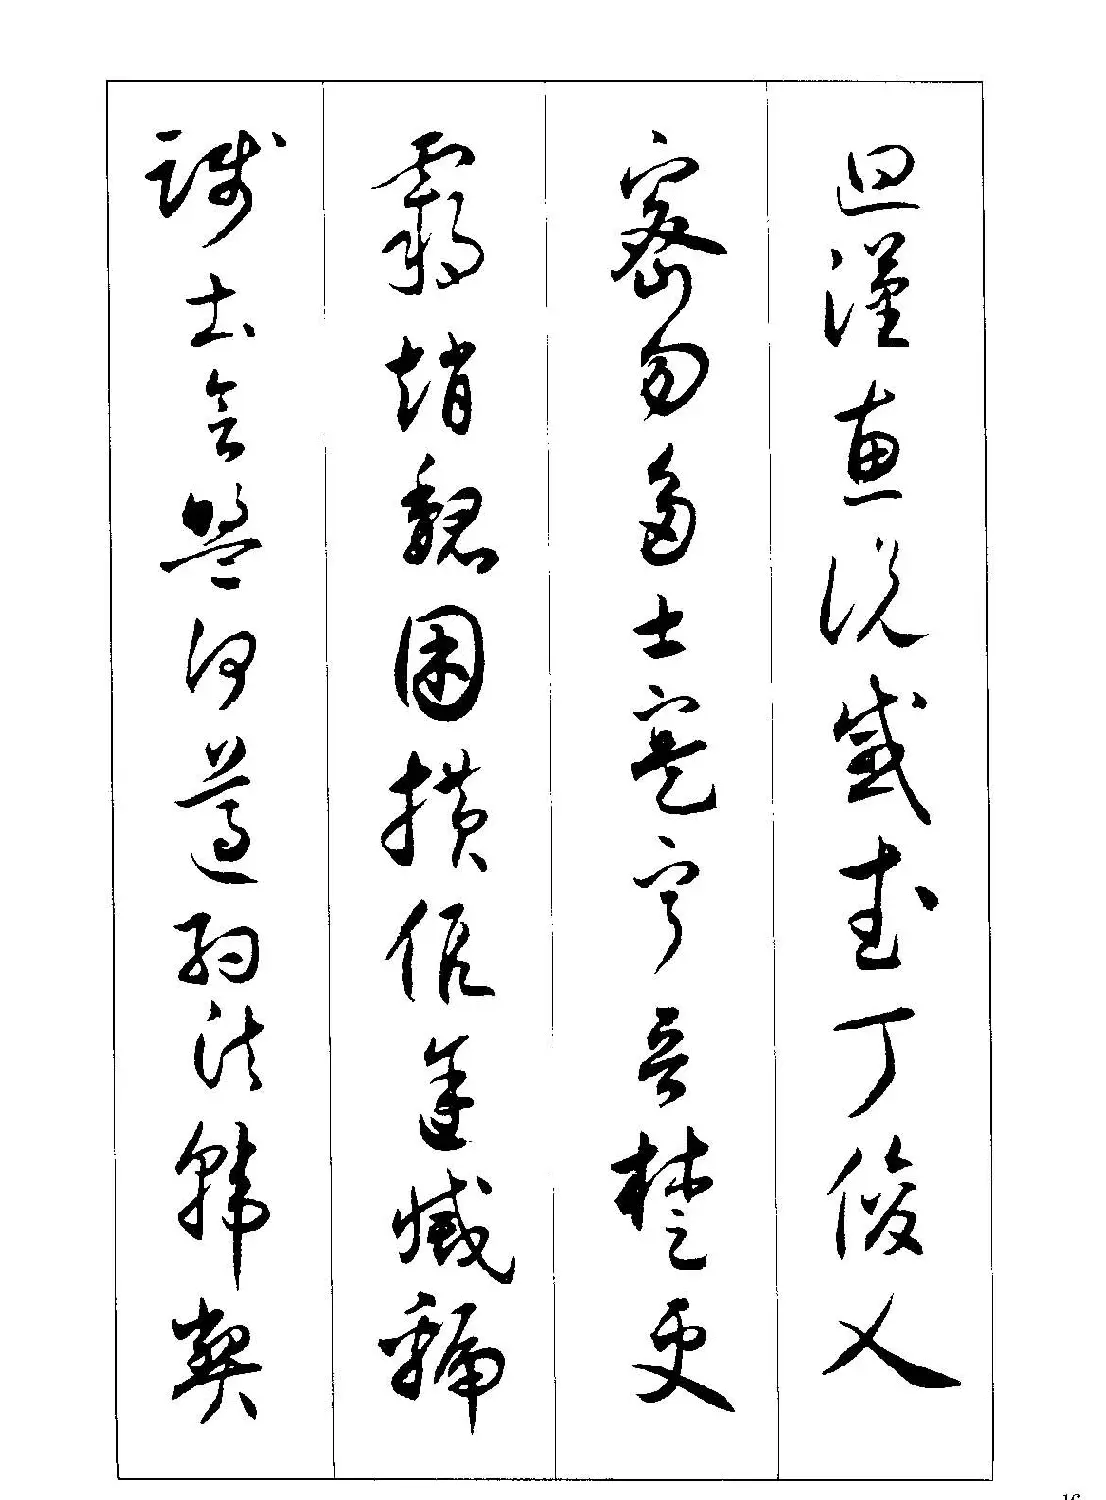 迴漢惠說感武丁俊乂
密勿多士寔寧晉楚更
霸趙魏困橫假途滅虢
踐土會盟何遵約法韓弊